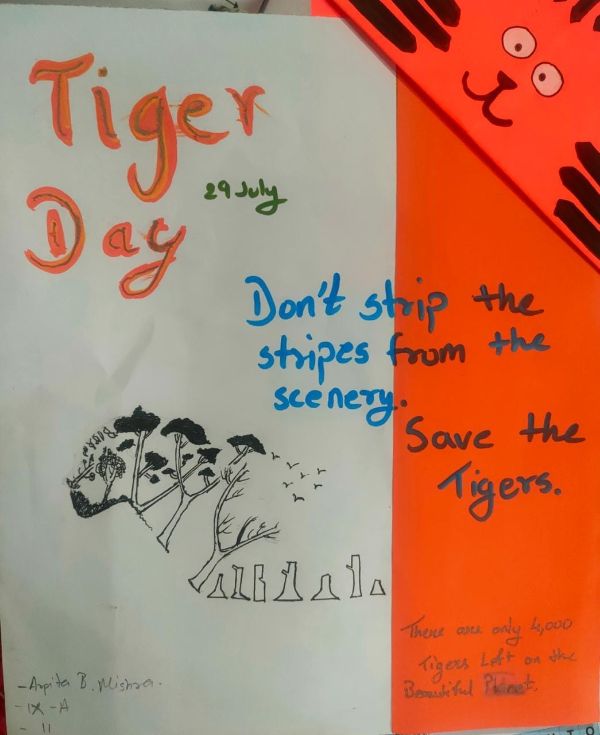 Tiger
Day
29 July
Don't strip the
stripes from the
scenery.
Save the
Tigers.
There are only 4,000
Tigers Left on the
Beautiful Planet.
-Arpita B. Mishra.
- IX -A
- 11